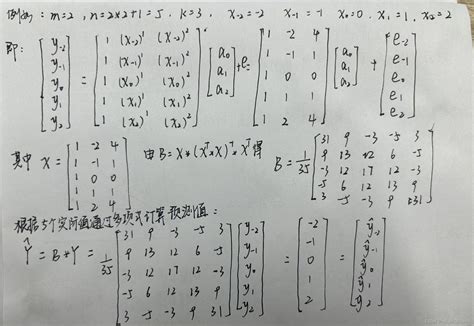 例如：m=2，n=2×2+1=5，k=3，x₋₂=-2 x₋₁=-1 x₀=0，x₁=1，x₂=2
即：[y₋₂ y₋₁ y₀ y₁ y₂] = [1 (x₋₂)¹ (x₋₂)²; 1 (x₋₁)¹ (x₋₁)²; 1 (x₀)¹ (x₀)²; 1 (x₁)¹ (x₁)²; 1 (x₂)¹ (x₂)²] [a₀ a₁ a₂] + e = [1 -2 4; 1 -1 1; 1 0 0; 1 1 1; 1 2 4] [a₀ a₁ a₂] + [e₋₂ e₋₁ e₀ e₁ e₂]
其中 X = [1 -2 4; 1 -1 1; 1 0 0; 1 1 1; 1 2 4] 由B=X*(Xᵀ*X)*Xᵀ得 B = 1/35 [31 9 -3 -5 3; 9 13 12 6 -5; -3 12 17 12 -3; -5 6 12 13 9; 3 -5 -3 9 31]
根据5个实际值通过多项式计算预测值：
Ŷ = B*Y = 1/35 [31 9 -3 -5 3; 9 13 12 6 -5; -3 12 17 12 -3; -5 6 12 13 9; 3 -5 -3 9 31] [y₋₂ y₋₁ y₀ y₁ y₂] = [-2 -1 0 1 2] = [ŷ₋₂ ŷ₋₁ ŷ₀ ŷ₁ ŷ₂]